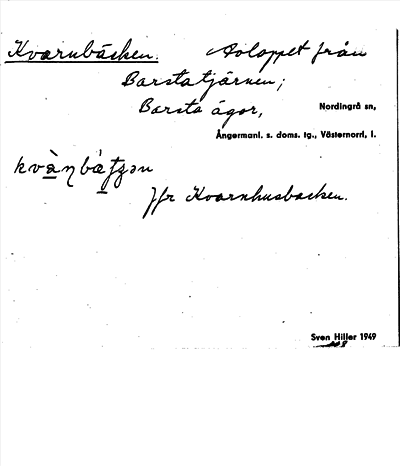 Kvarnbäcken. Avloppet från
Barstatjärnen;
Barsta ägor,
Nordingrå sn,
Ångermanl. s. doms. tg., Västernorrl, l.
Jfr Kvarnhusbacken.
Sven Hiller 1949